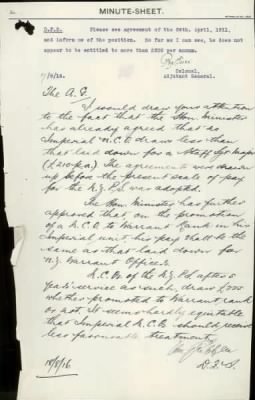 MINUTE-SHEET.
D.F.S. Please see agreement of the 26th. April, 1911,
and inform me of the position. So far as I can see, he does not
appear to be entitled to more than £200 per annum.
Colonel,
Adjutant General.
The A.G.
I would draw your attention
to the fact that the Hon. Minister
has already agreed that no
Imperial N.C.O. draw less than
that laid down for a Staff Sgt Major
(£210 p.a.) The agreement was drawn
up before the present scale of pay
for the N.Z.P.S. was adopted.
The Hon. Minister has further
approved that, on the promotion
of a N.C.O. to Warrant Rank in his
Imperial unit his pay shall be the
same as that laid down for
N.Z. Warrant Officers.
N.C.Os. of the N.Z.P.S. after 6
years service as such, draw
whether promoted to Warrant rank
or not. It seems hardly equitable
that Imperial N.C.O. should receive
less favourable treatment.
D.F.S.